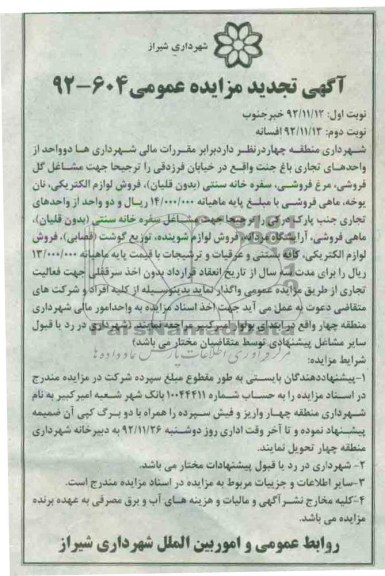 شهرداری شیراز
آگهی تجدید مزایده عمومی ۶۰۴-۹۲
نوبت اول: ۹۲/۱۱/۱۲ خبرجنوب
نوبت دوم: ۹۲/۱۱/۱۳ افسانه
شهرداری منطقه چهاردرنظر داردبرابر مقررات مالی شهرداری ها دوواحد از
واحدهای تجاری باغ جنت واقع در خیابان فرزدقی را ترجیحا جهت مشاغل گل
فروشی، مرغ فروشی، سفره خانه سنتی (بدون قلیان)، فروش لوازم الکتریکی، نان
یوخه، ماهی فروشی با مبلغ پایه ماهیانه ۱۴/۰۰۰/۰۰۰ ریال و دو واحد از واحدهای
تجاری جنب پارک درکی را ترجیحا جهت مشاغل سفره خانه سنتی (بدون قلیان)،
ماهی فروشی، آرایشگاه مردانه، فروش لوازم شوینده، توزیع گوشت (قصابی)، فروش
لوازم الکتریکی، کافه بستنی و عرقیات و ترشیجات با قیمت پایه ماهیانه ۱۳/۰۰۰/۰۰۰
ریال را برای مدت سه سال از تاریخ انعقاد قرارداد بدون اخذ سرقفلی جهت فعالیت
تجاری از طریق مزایده عمومی واگذار نماید بدینوسیله از کلیه افراد و شرکت های
متقاضی دعوت به عمل می آید جهت اخذ اسناد مزایده به واحدامور مالی شهرداری
منطقه چهار واقع در ابتدای بولوار امیرکبیر مراجعه نمایند. (شهرداری در رد یا قبول
سایر مشاغل پیشنهادی توسط متقاضیان مختار می باشد)
شرایط مزایده:
۱-پیشنهاددهندگان بایستی به طور مقطوع مبلغ سپرده شرکت در مزایده مندرج
در اسناد مزایده را به حساب شماره ۱۰۰۴۴۴۱۱ بانک شهر شعبه امیرکبیر به نام
شهرداری منطقه چهار واریز و فیش سپرده را همراه با دو برگ کپی آن ضمیمه
پیشنهاد نموده و تا آخر وقت اداری روز دوشنبه ۹۲/۱۱/۲۶ به دبیرخانه شهرداری
منطقه چهار تحویل نمایند.
۲- شهرداری در رد یا قبول پیشنهادات مختار می باشد.
۳-سایر اطلاعات و جزییات مربوط به مزایده در اسناد مزایده مندرج است.
۴-کلیه مخارج نشر آگهی و مالیات و هزینه های آب و برق مصرفی به عهده برنده
مزایده می باشد.
روابط عمومی و اموربین الملل شهرداری شیراز